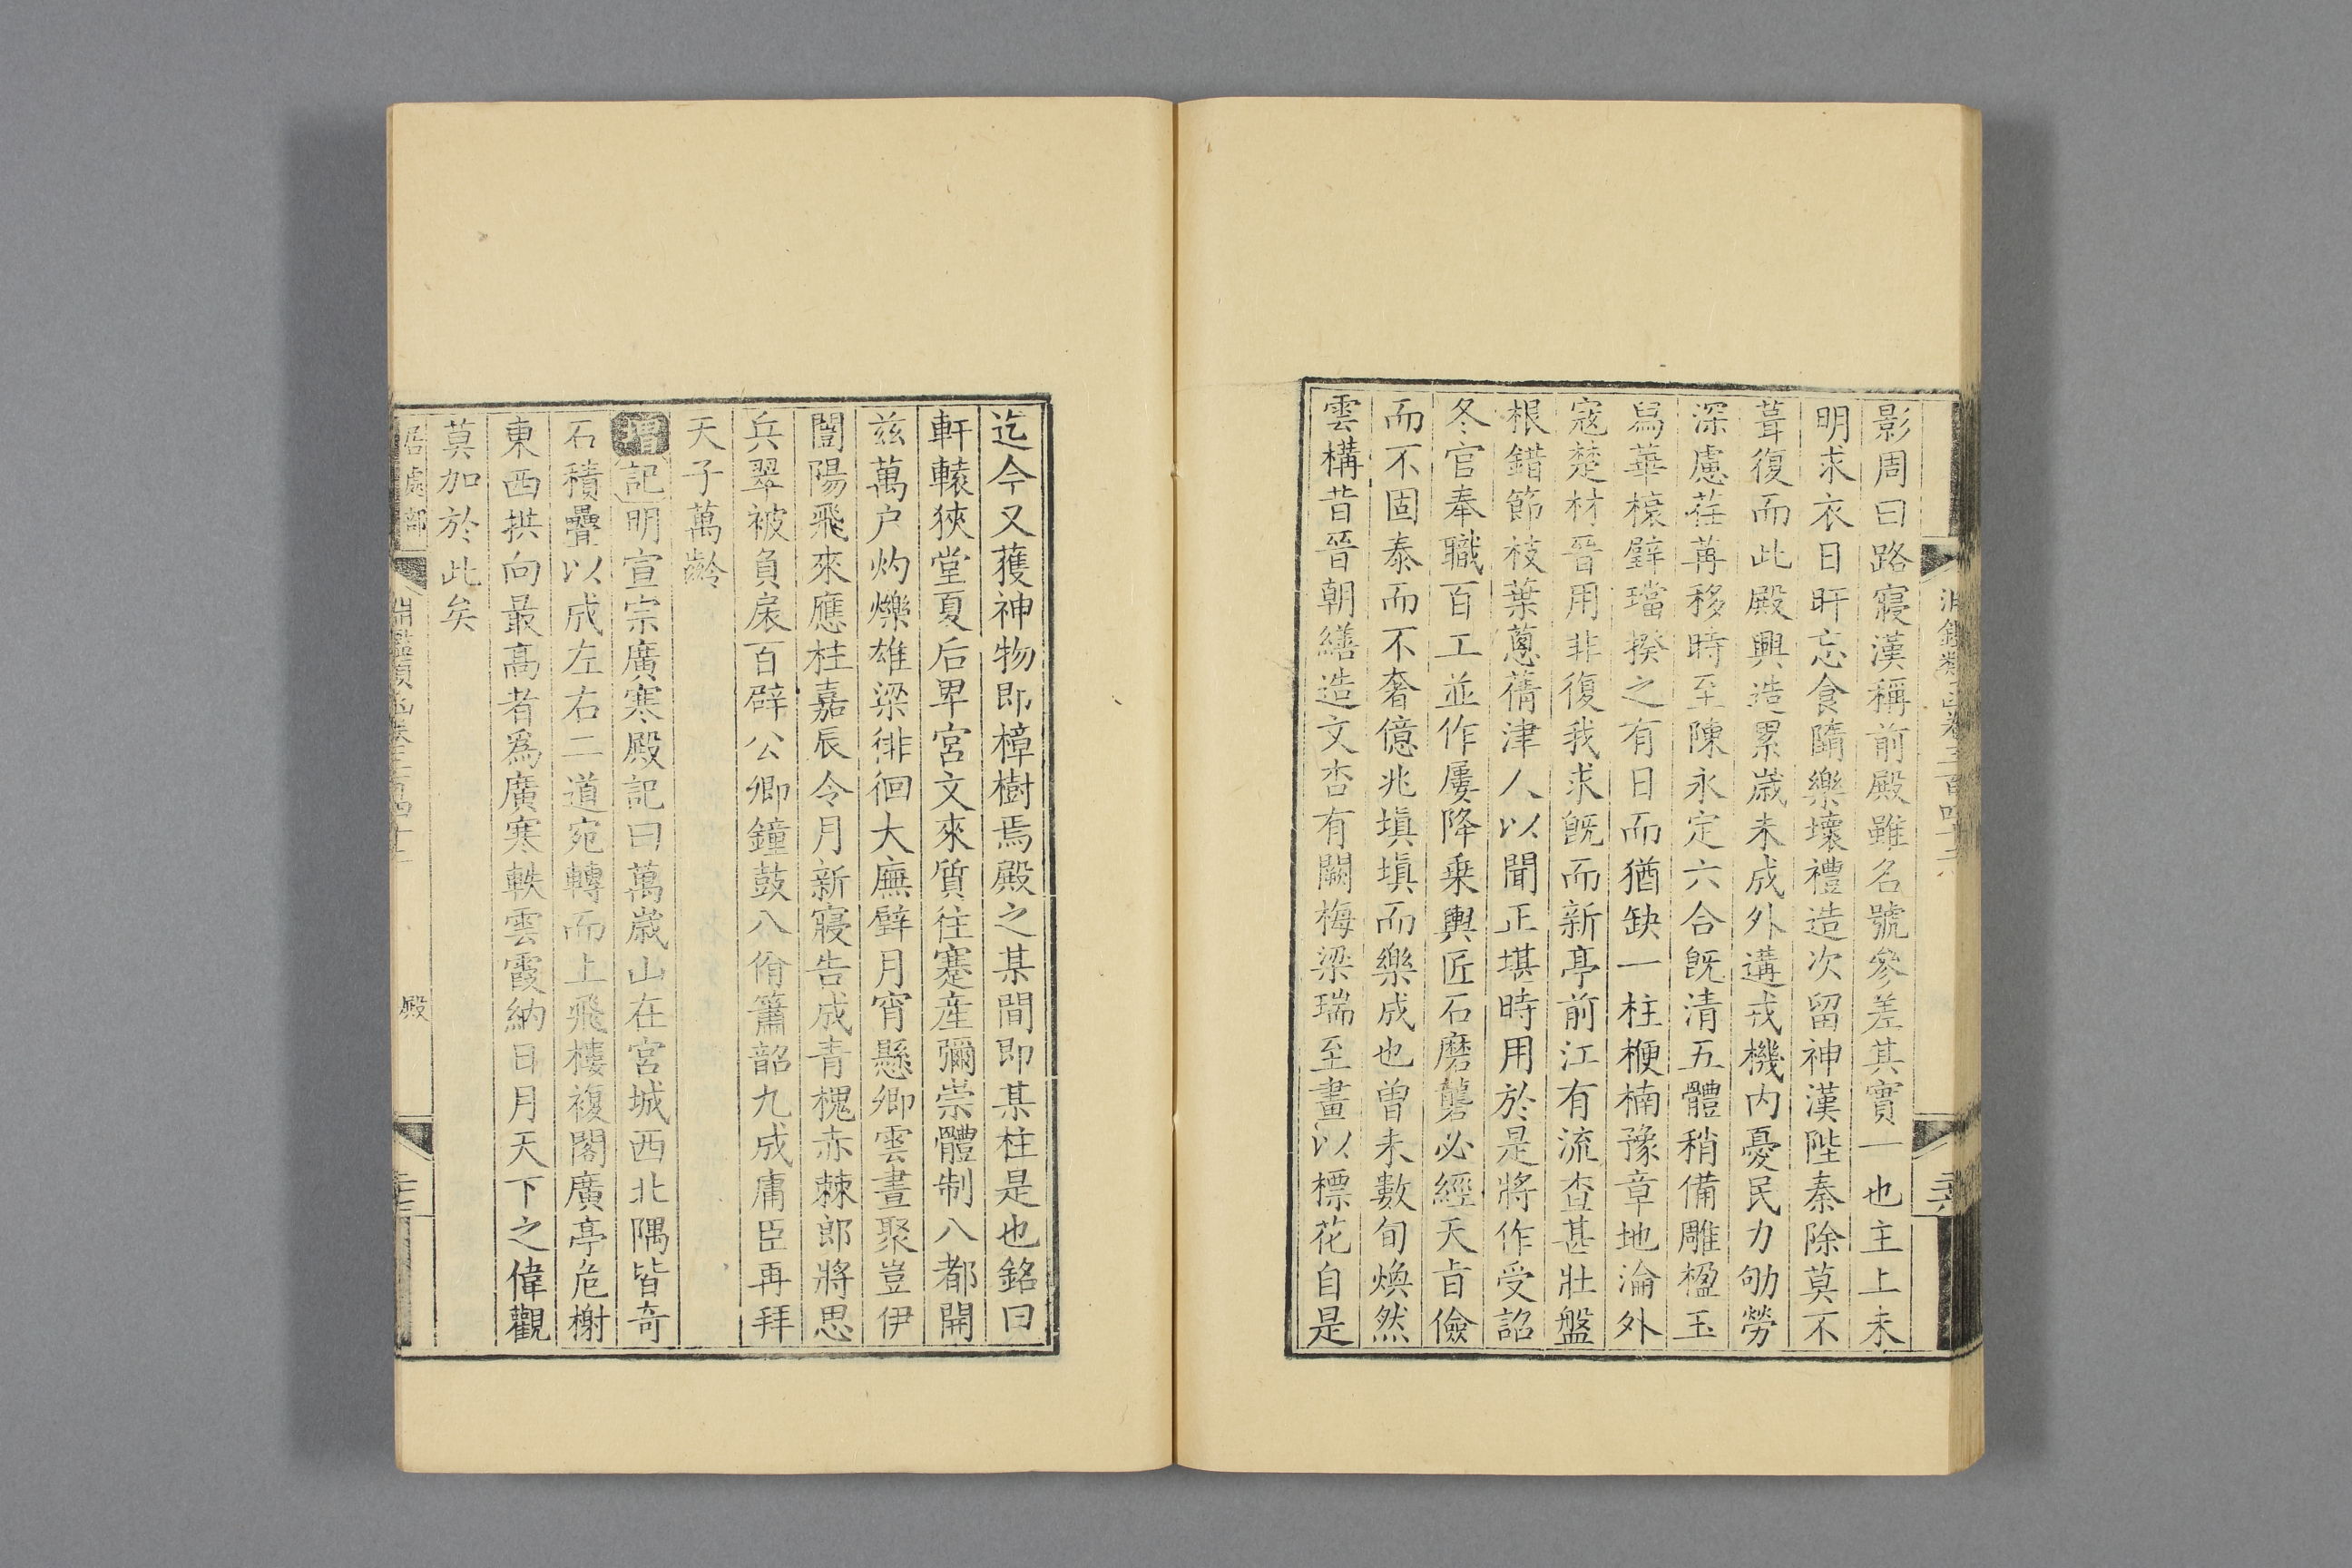 影周曰路寢漢稱前殿雖名號參差其實一也主上未
明求衣日旰忘食隋樂壞禮造次留神漢陛秦除莫不
葺復而此殿興造累歲未成外遘戎機内憂民力劬勞
深慮荏苒移時至陳永定六合既清五體稍備雕楹玉
舄華榱璧璫揆之有日而猶缺一柱楩楠豫章地淪外
寇楚材晉用非復我求既而新亭前江有流查甚壯盤
根錯節枝葉蔥蒨津人以聞正堪時用於是將作受詔
冬官奉職百工並作屢降乗輿匠石磨礱必經天㫖儉
而不固泰而不奢億兆塡塡而樂成也曾未數旬煥然
雲構昔晉朝繕造文杏有闕梅梁瑞至畫以標花自是
迄今又獲神物即樟樹焉殿之某間即某柱是也銘曰
軒轅狹堂夏后卑宮文來質往蹇産彌崇體制八都開
兹萬户灼爍雄梁徘徊大廡璧月宵懸卿雲晝聚豈伊
閣陽飛來應柱嘉辰令月新寢告成青槐赤棘郎將思
兵翠被負扆百辟公卿鐘鼓八佾簫韶九成庸臣再拜
天子萬齡
增記明宣宗廣寒殿記曰萬歲山在宮城西北隅皆竒
石積疊以成左右二道宛轉而上飛樓複閣廣亭危榭
東西拱向最高者爲廣寒軼雲霞納日月天下之偉觀
莫加於此矣
居處部 淵鑑類函卷三百四十二 殿